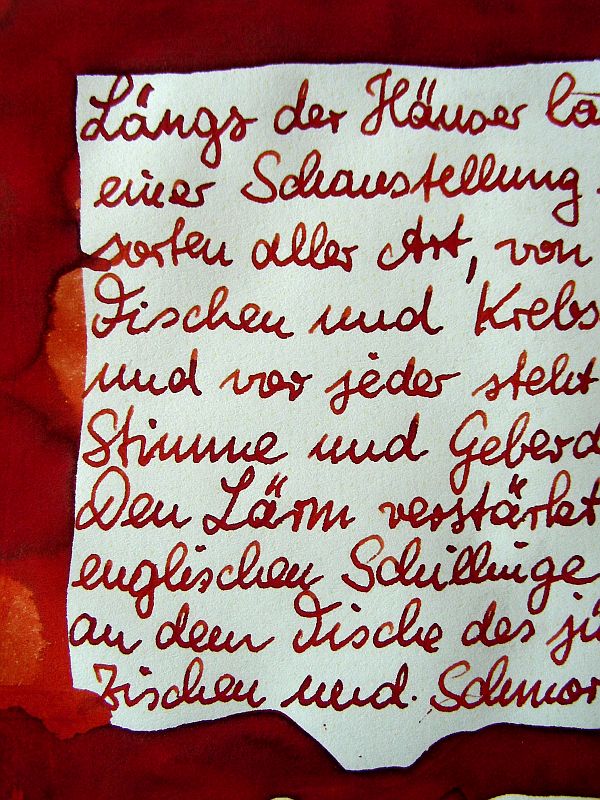 Längs der Häuser
einer Schaustellung
sorten aller Art, von
Fischen und Krebs
und vor jeder steht
Stimme und Geberd
Den Lärm verstärkt
englischen Schillinge
an dem Tische des jü
Zischen und Schmor